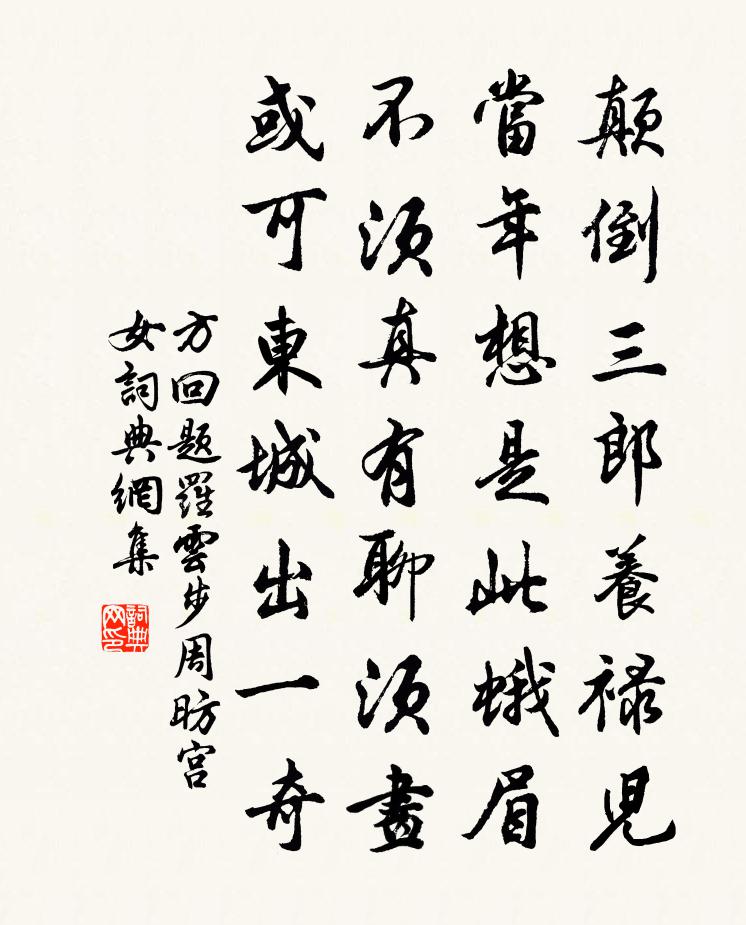 顛倒三郎養祿兒
當年想是此蛾眉
不須真有聊須畫
或可東城出一奇
方回題羅雲步周昉宮
女詞典網集
詞典網印